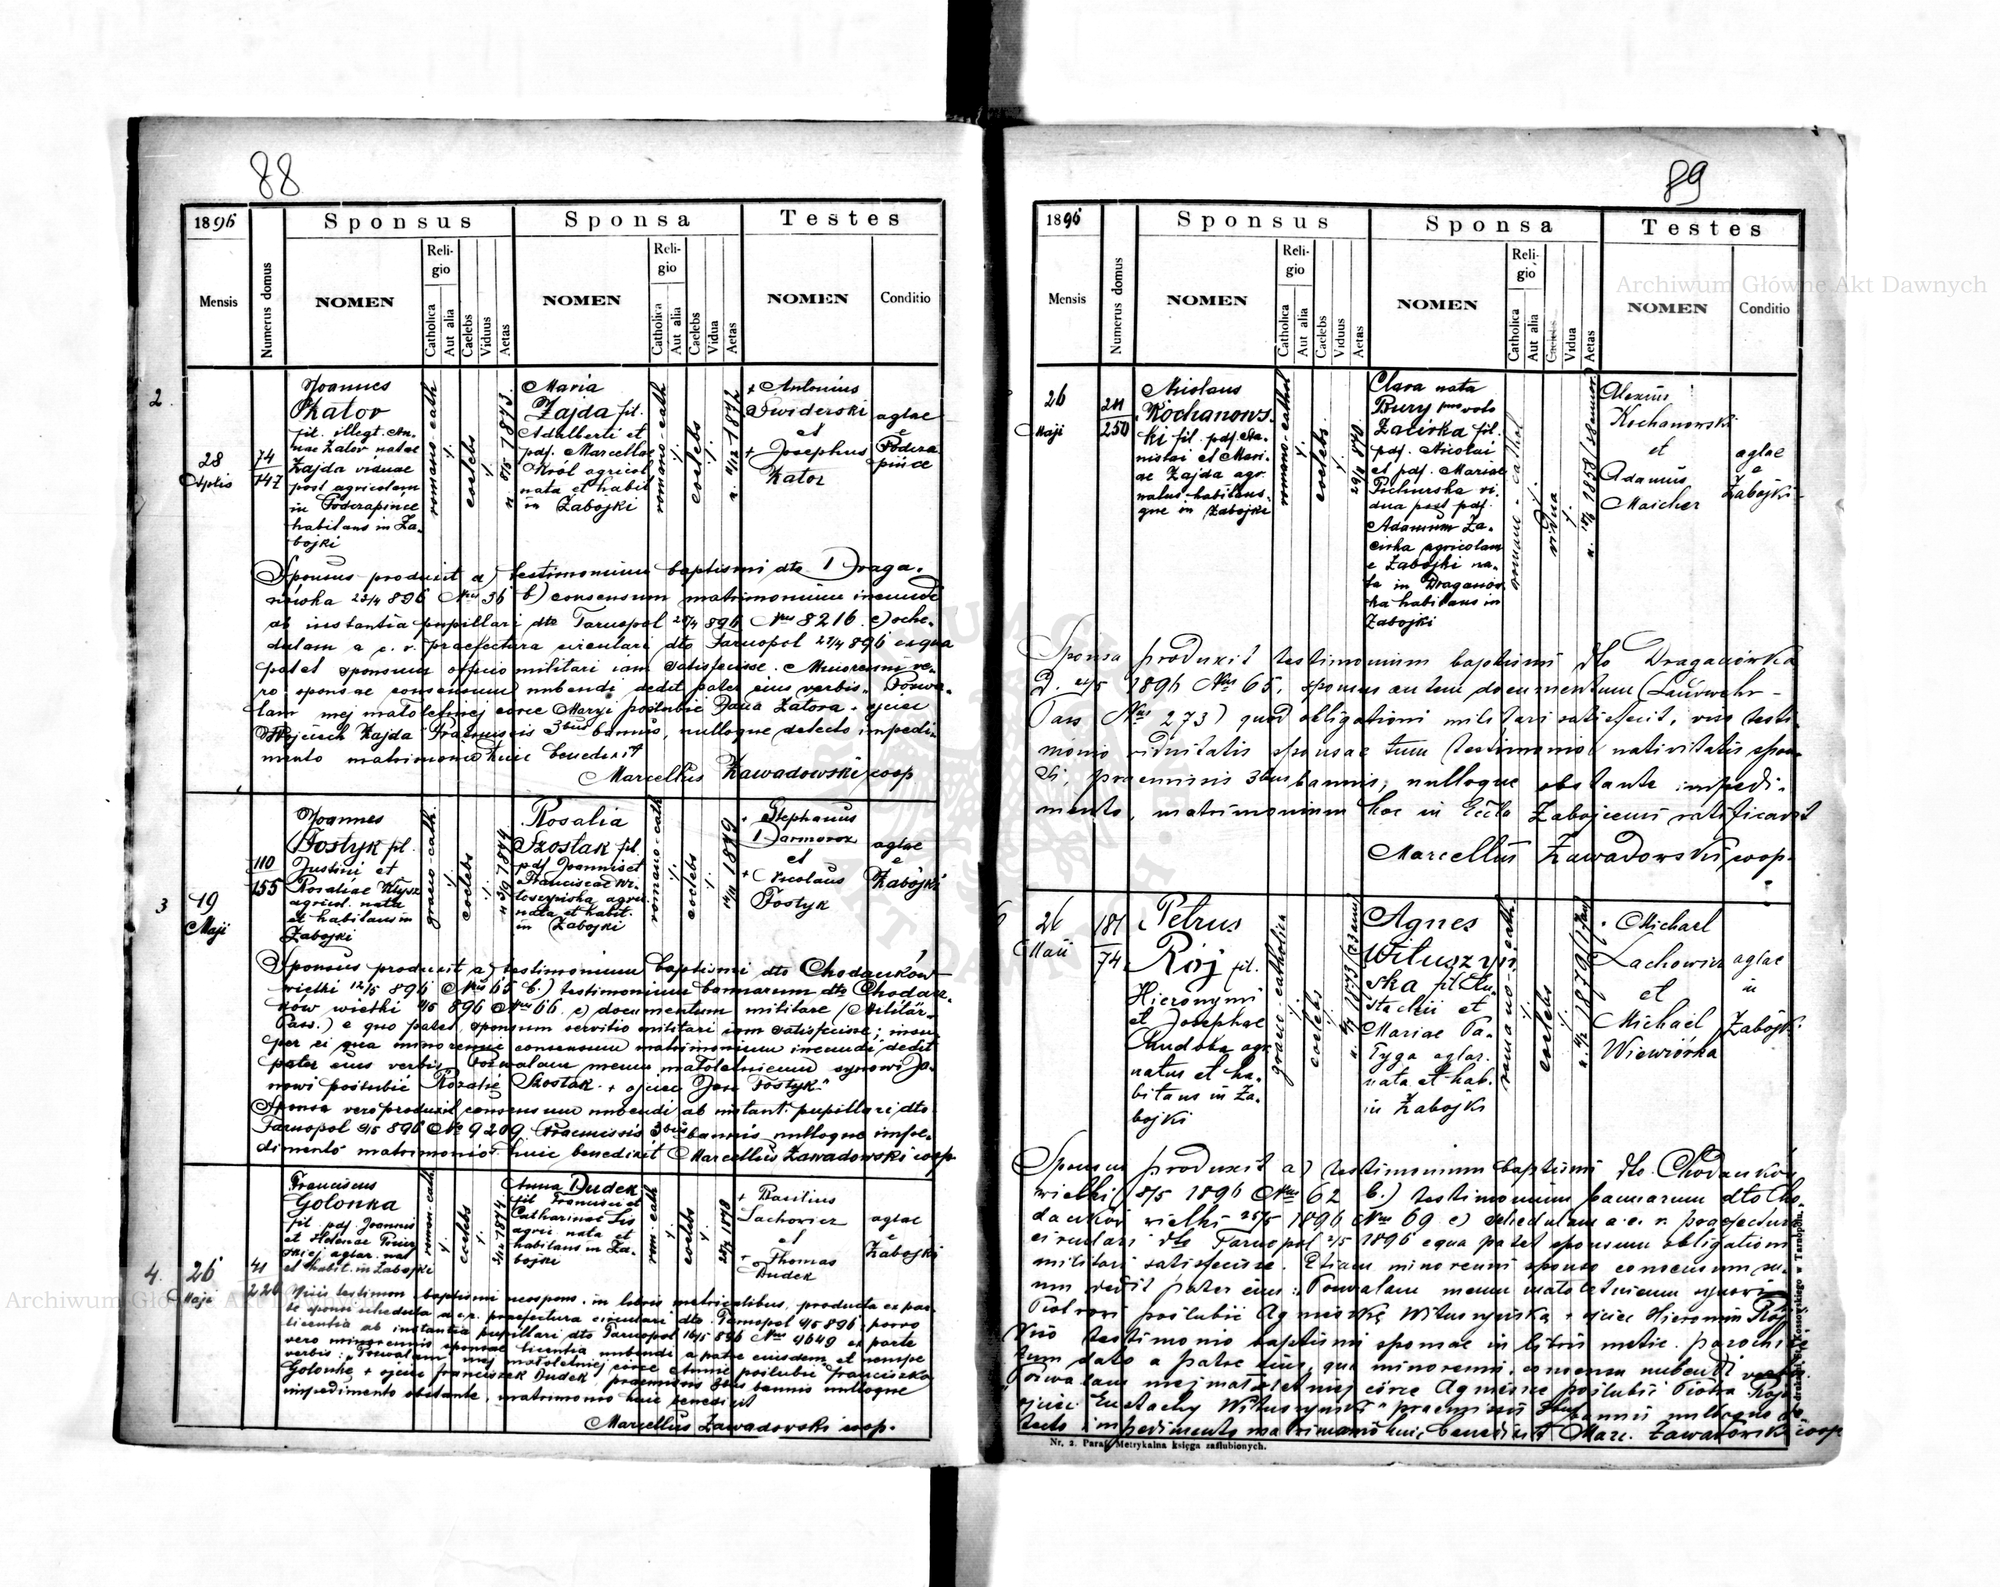 88
1896
Sponsus
Sponsa
Testes
Mensis
Numerus domus
NOMEN
Religio
Catholica
Aut alia
Caelebs
Viduus
Aetas
NOMEN
Religio
Catholica
Aut alia
Caelebs
Vidua
Aetas
NOMEN
Conditio
2
28
Aplis
74
747
Joannes
Zator
fil. illegt. An-
nae Zator natae
Zajda viduae
post agricolam
in Poczapińce
habitans in Za-
bojki
romano-cath
coelebs
Maria
Zajda fil.
Adalberti et
pdf. Marcellae
Król agricol.
nata et habit
in Zabojki
romano-cath
coelebs
+ Antonius
Świderski
et
+ Josephus
Zator
aglae
e
Poczapińce
Sponsus produxit a) testimonium baptismi dto Draga-
nówka 23/4 896 Nus 36 b) consensum matrimonium ineundi
ab instantia pupillari dto Tarnopol 896 Nus 8216. c) sche-
dulam a c. r. praefectura circulari dto Tarnopol 27/4 896 ex qua
patet sponsum officio militari iam satisfecisse. Minorenni ve-
ro sponsae consensum nubendi dedit pater eius verbis. Pozwa-
lam mej małoletniej córce Maryi poślubić Jana Zatora. ojciec
Wojciech Zajda Praemissis 3bus bannis, nulloque detecto impedi-
mento matrimonio huic benedixit
Marcellus Zawadowski coop
3
19
Maji
110
155
Joannes
Fostyk fil.
Justini et
Rosaliae
agricol. nata
et habitans in
Zabojki
graeco-cath.
coelebs
Rosalia
Szostak fil.
pdf Joannis et
Franciscae
agric.
nata et habit.
in Zabojki
romano-cath
coelebs
+ Stephanus
Darmoroz
et
+ Nicolaus
Fostyk
aglae
e
Zabojki
Sponsus produxit a) testimonium baptismi dto Chodaczków
wielki 12/5 896 Nus 65 b) testimonium bannorum dto Chodacz-
ków wielki 896 Nus 66 c) documentum militare (Militär-
Pass.) e quo patet, sponsum servitio militari iam satisfecisse; insu-
per ei qua minorenni consensum matrimonium ineundi dedit
pater eius verbis. Pozwalam memu małoletniemu synowi Ja-
nowi poślubić Rozalię Szostak. + ojciec Jan Fostyk"
Sponsa vero produxit consensum nubendi ab instant. pupillari dto
Tarnopol 896 Nus 9209 Praemissis 3bus bannis nulloque impe-
dimento matrimonio huic benedixit Marcellus Zawadowski coop
4.
26
Maji
41
226
Franciscus
Golonka
fil. pdf. Joannis
et Helenae
aglar. nat
et habit. in Zabojki
roman-cath.
coelebs
Anna Dudek
fil Francisci et
Catharinae Lis
agric. nata et
habitans in Za-
bojki
rom. cath
coelebs
+ Basilius
Lachowicz
et
+ Thomas
Dudek
aglae
e
Zabojki
Visis testimon baptismi neospons. in libris metricalibus, producta ex par-
te sponsi schedula a c.r. praefectura circulari dto. Tarnopol 4/5 896, porro
licentia ab instantia pupillari dto Tarnopol 16/5 896 Nus 4649 ex parte
vero minorennis sponsae licentia nubendi a patre eiusdem et nempe
verbis: "Pozwalam mej małoletniej córce Annie poślubić Franciszka
Golonkę + ojciec Franciszek Dudek praemissis 3bus bannis nulloque
impedimento obstante, matrimonio huic benedixit
Marcellus Zawadowski coop.
89
1896
Sponsus
Sponsa
Testes
Mensis
Numerus domus
NOMEN
Religio
Catholica
Aut alia
Caelebs
Viduus
Aetas
NOMEN
Religio
Catholica
Aut alia
Caelebs
Vidua
Aetas
NOMEN
Conditio
26
Maji
211
250
Nicolaus
Kochanows-
ki fil. pdf. Sta-
nislai et Mari-
ae Zajda agr.
natus habitans-
que in Zabojki
romano-cathol
coelebs
Clara nata
Bury pmo voto
Zacirka fil.
pdf. Nicolai
et pdf. Mariae
Pichurska vi-
dua post pdf.
Adamum Za-
cirka agricolam
e Zabojki na-
ta in Draganów-
ka habitans in
Zabojki
romano-cathol
vidua
Alexius
Kochanowski
et
Adamus
Maicher
aglae
e
Zabojki
Sponsa produxit testimonium baptismi dto Draganówka
D. 1896 Nus 65, sponsus autem documentum (Landwehr-
Pass Nus 273) quod obligationi militari satisfecit, viso testi-
monio viduitatis sponsae tum testimonio nativitatis spon-
si, praemissis 3bus bannis, nulloque obstante impedi-
mento, matrimonium hoc in Eccla Zabojcensi ratificavit
Marcellus Zawadowski coop.
26
Maii
181
74
Petrus
Rój fil.
Hieronymi
et Josephae
Rudoka agr.
natus et ha-
bitans in Za-
bojki
graeco-catholica
coelebs
Agnes
Wituszyń-
ska fil Eu-
stachii et
Mariae Pa-
tyga aglar.
nata et hab.
in Zabojki
romano-cath.
coelebs
Michael
Lachowicz
et
Michael
Wiewiórka
aglae
in
Zabojki
Sponsus produxit a) testimonium baptismi dto. Chodaczków
wielki 18/5 1896 Nus 62 b.) testimonium bannorum dto Cho-
daczków wielki 25/5 1896 Nus 69 c) schedulam a c. r. praefectura
circulari dto Tarnopol 1896 e qua patet sponsum obligationi
militari satisfecisse. Etiam minorenni sponso consensum su-
um dedit pater eius: Pozwalam memu małoletniemu synowi
Piotrowi poślubić Agnieszkę Wituszyńską + ojciec Hieronim Rój
Viso testimonio baptismi sponsae in libris metric. parochiae
tum dato a patre eius, qua minorenni, consensu nubendi verbis
Pozwalam mej małoletniej córce Agnieszce poślubić Piotra Rója
ojciec Eustachy Wituszyński" praemissis 3bus bannis nulloque de-
tecto impedimento matrimonio huic benedixit Marc. Zawadowski coop
Nr. 2. Paraf. Metrykalna księga zaślubionych.
Archiwum Główne Akt Dawnych
Archiwum Główne Akt Dawnych